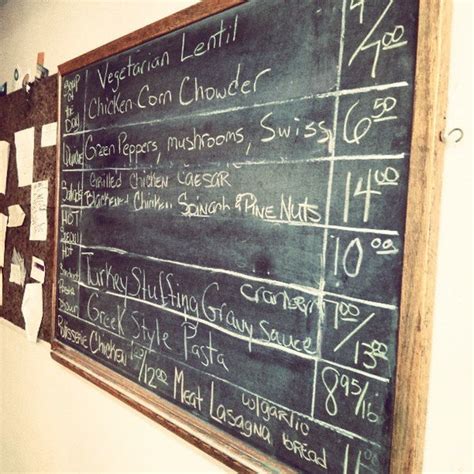 Soup of the Day Vegetarian Lentil 4/
Chicken Corn Chowder 7.00
Quiche Green Peppers, mushrooms, Swiss 6.50
Salads Grilled Chicken CAESAR
Blackened Chicken Spinach & Pine Nuts 14.00
HOT
10.00
HOT Turkey Stuffing Gravy cranberry sauce 7.00/13.00
Pasta Greek Style Pasta 8.95/16
Rotisserie Chicken 12.00 Meat Lasagna w/garlic bread